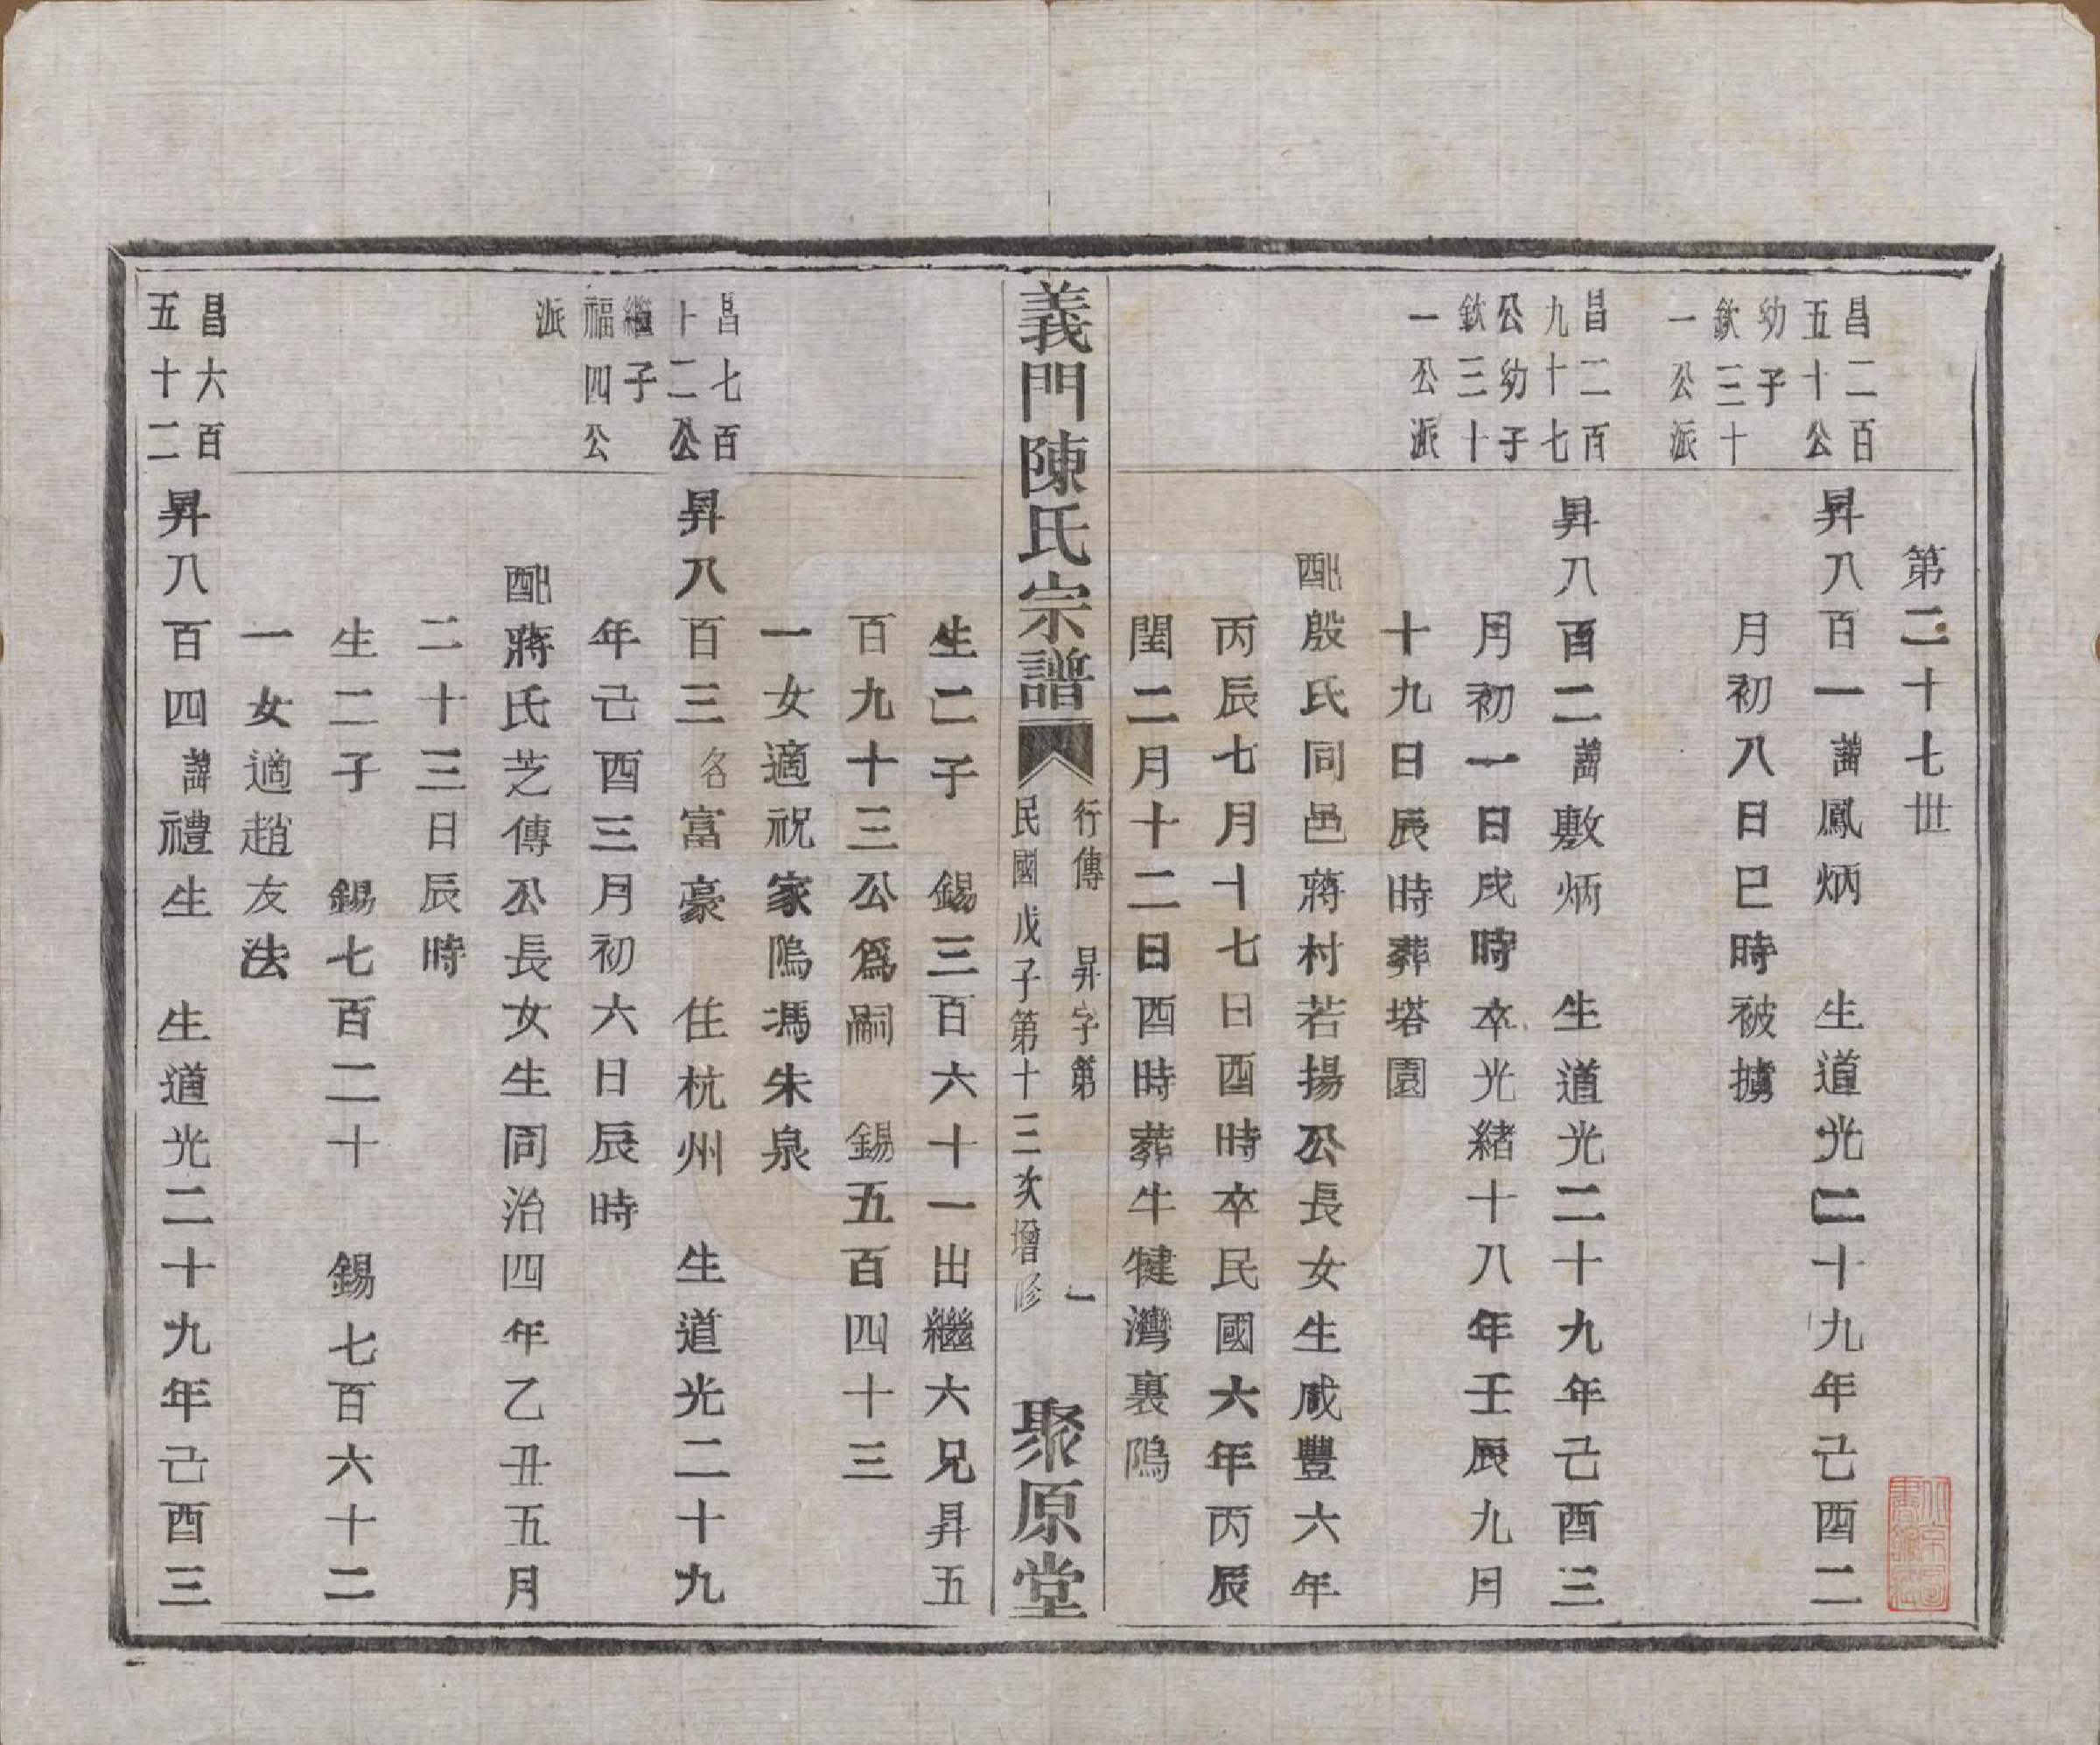 第二十七世
昌二百
五十公
幼子
欽三十
一公派
昇八百一諱鳳炳　生道光二十九年己酉二
月初八日巳時被擄
昌二百
九十七
公幼子
欽三十
一公派
昇八百二諱敷炳　生道光二十九年己酉三
月初一日戌時卒光緒十八年壬辰九月
十九日辰時葬塔園
配殷氏同邑蔣村若揚公長女生咸豐六年
丙辰七月十七日酉時卒民國六年丙辰
閏二月十二日酉時葬牛犍灣裏隖
義門陳氏宗譜
行傳　昇字第　一
民國戊子第十三次增修
聚原堂
生二子　錫三百六十一出繼六兄昇五
百九十三公爲嗣　錫五百四十三
一女適祝家隖馮朱泉
昌七百
十二公
繼子
福四公
派
昇八百三名富豪　住杭州　生道光二十九
年己酉三月初六日辰時
配蔣氏芝傳公長女生同治四年乙丑五月
二十三日辰時
生二子　錫七百二十　錫七百六十二
一女適趙友法
昌六百
五十二
昇八百四諱禮生　生道光二十九年己酉三